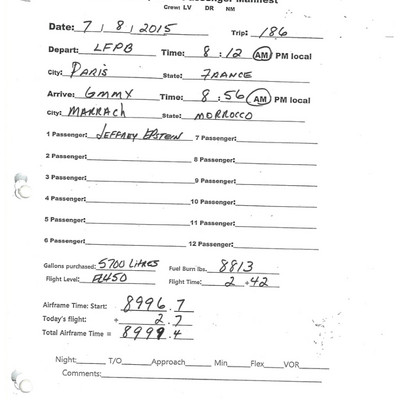 Passenger Manifest
Crew: LV DR NM
Date: 7 / 8 / 2015 Trip: 186
Depart: LFPB Time: 8 : 12 AM PM local
City: PARIS State: FRANCE
Arrive: GMMX Time: 8 : 56 AM PM local
City: MARRACH State: MORROCCO
1 Passenger: JEFFREY EPSTEIN 7 Passenger:
2 Passenger: 8 Passenger:
3 Passenger: 9 Passenger:
4 Passenger: 10 Passenger:
5 Passenger: 11 Passenger:
6 Passenger: 12 Passenger:
Gallons purchased: 5700 LITRES Fuel Burn lbs. 8813
Flight Level: 450 Flight Time: 2 +42
Airframe Time: Start: 8996.7
Today's flight: + 2.7
Total Airframe Time = 8999.4
Night: T/O Approach Min Flex VOR
Comments: